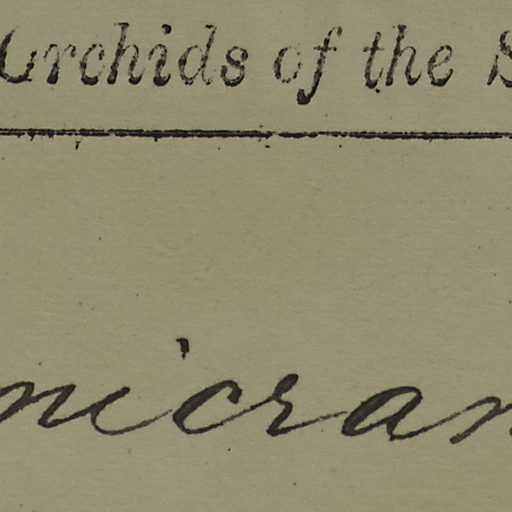 Orchids of the S
micran